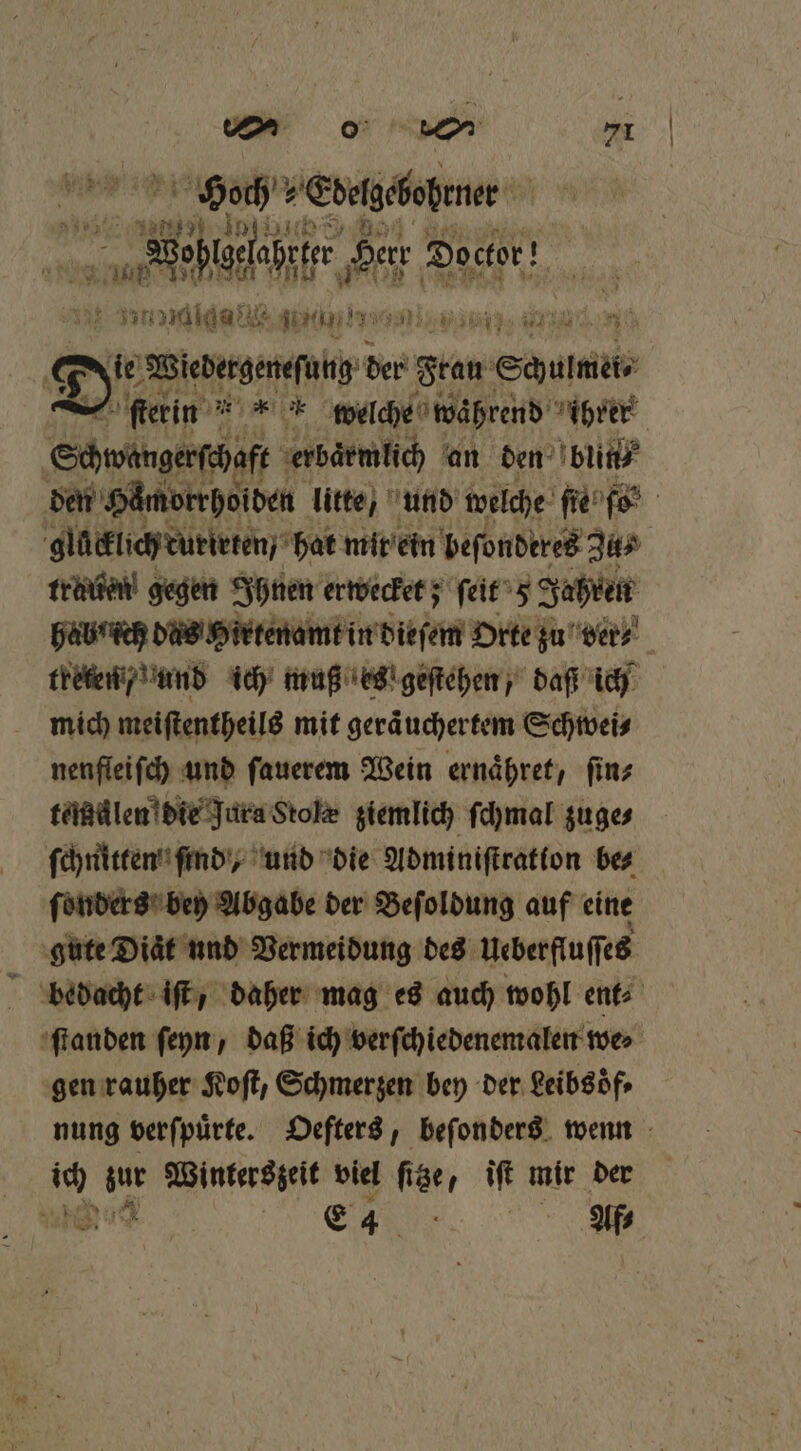 o 71
Hoch⸗Edelgebohrner
Wohlgelahrter Herr Doctor!
Die Wiedergeneſung der Frau Schulmei⸗
ſterin * * * welche waͤhrend ihrer
Schwangerſchaft erbaͤrmlich an den blin⸗
den Haͤmorrhoiden litte, und welche ſie ſo
gluͤcklich curirten, hat mir ein beſonderes Zu⸗
trauen gegen Ihnen erwecket; ſeit 5 Jahren
hab ich das Hirtenamt in dieſem Orte zu ver⸗
treten, und ich muß es geſtehen, daß ich
mich meiſtentheils mit geraͤuchertem Schwei⸗
nenfleiſch und ſauerem Wein ernaͤhret, ſin⸗
temalen die Jura Stolæ ziemlich ſchmal zuge⸗
ſchnitten ſind, und die Adminiſtration be⸗
ſonders bey Abgabe der Beſoldung auf eine
gute Diaͤt und Vermeidung des Ueberfluſſes
bedacht iſt, daher mag es auch wohl ent⸗
ſtanden ſeyn, daß ich verſchiedenemalen we⸗
gen rauher Koſt, Schmerzen bey der Leibsoͤf⸗
nung verſpuͤrte. Oefters, beſonders wenn
ich zur Winterszeit viel ſitze, iſt mir der
E 4 Af⸗